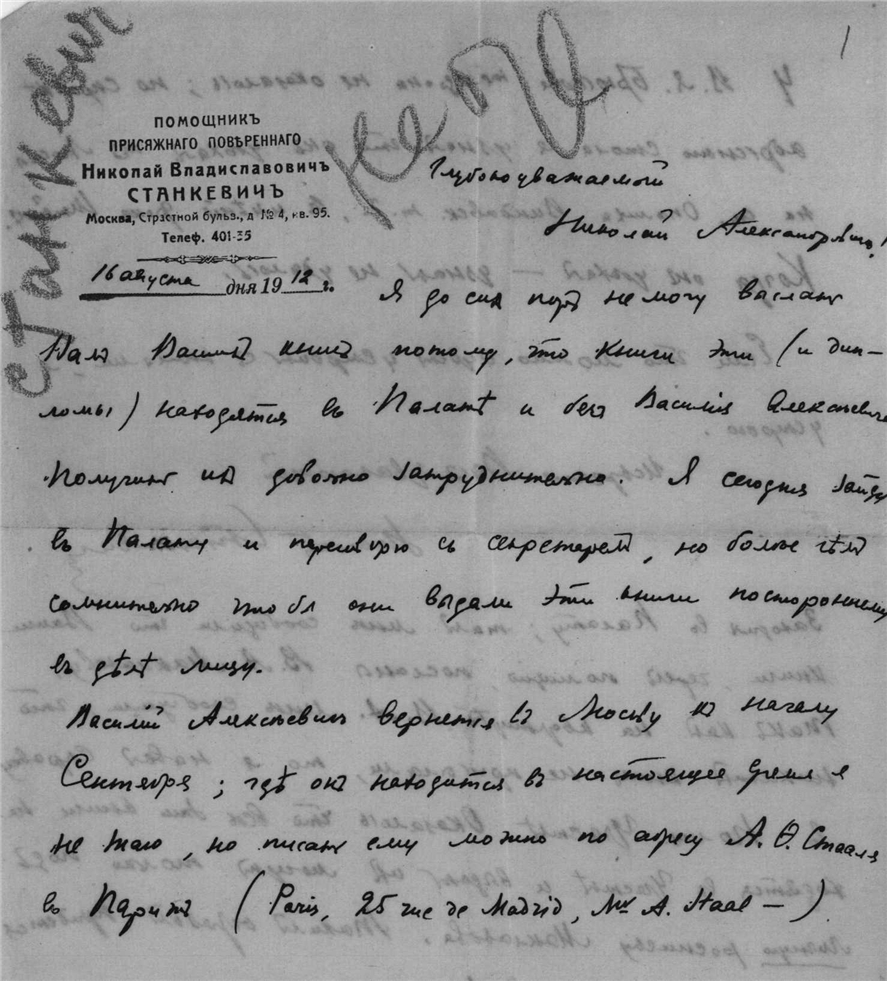 1
Станкевич
ПОМОЩНИКЪ
ПРИСЯЖНАГО ПОВѢРЕННАГО
Николай Владиславовичъ
СТАНКЕВИЧЪ
Москва, Страстной бульв., д № 4, кв. 95.
Телеф. 401-35
16 августа дня 1912 г.
Глубокоуважаемый
Николай Александровичъ!
Я до сихъ поръ не могу выслать
Вамъ Вашихъ книгъ потому, что книги эти (и дип-
ломы) находятся въ Палатѣ и безъ Василія Алексѣевича
получить ихъ довольно затруднительно. Я сегодня зайду
въ Палату и переговорю съ секретаремъ, но болѣе чѣмъ
сомнительно чтобъ они выдали эти книги постороннему
въ дѣлѣ лицу.
Василій Алексѣевичъ вернется въ Москву къ началу
Сентября; гдѣ онъ находится въ настоящее время я
не знаю, но писать ему можно по адресу А. Ѳ. Стааля
въ Парижъ (Paris, 25 rue de Madrid, Mr A. Staal —)